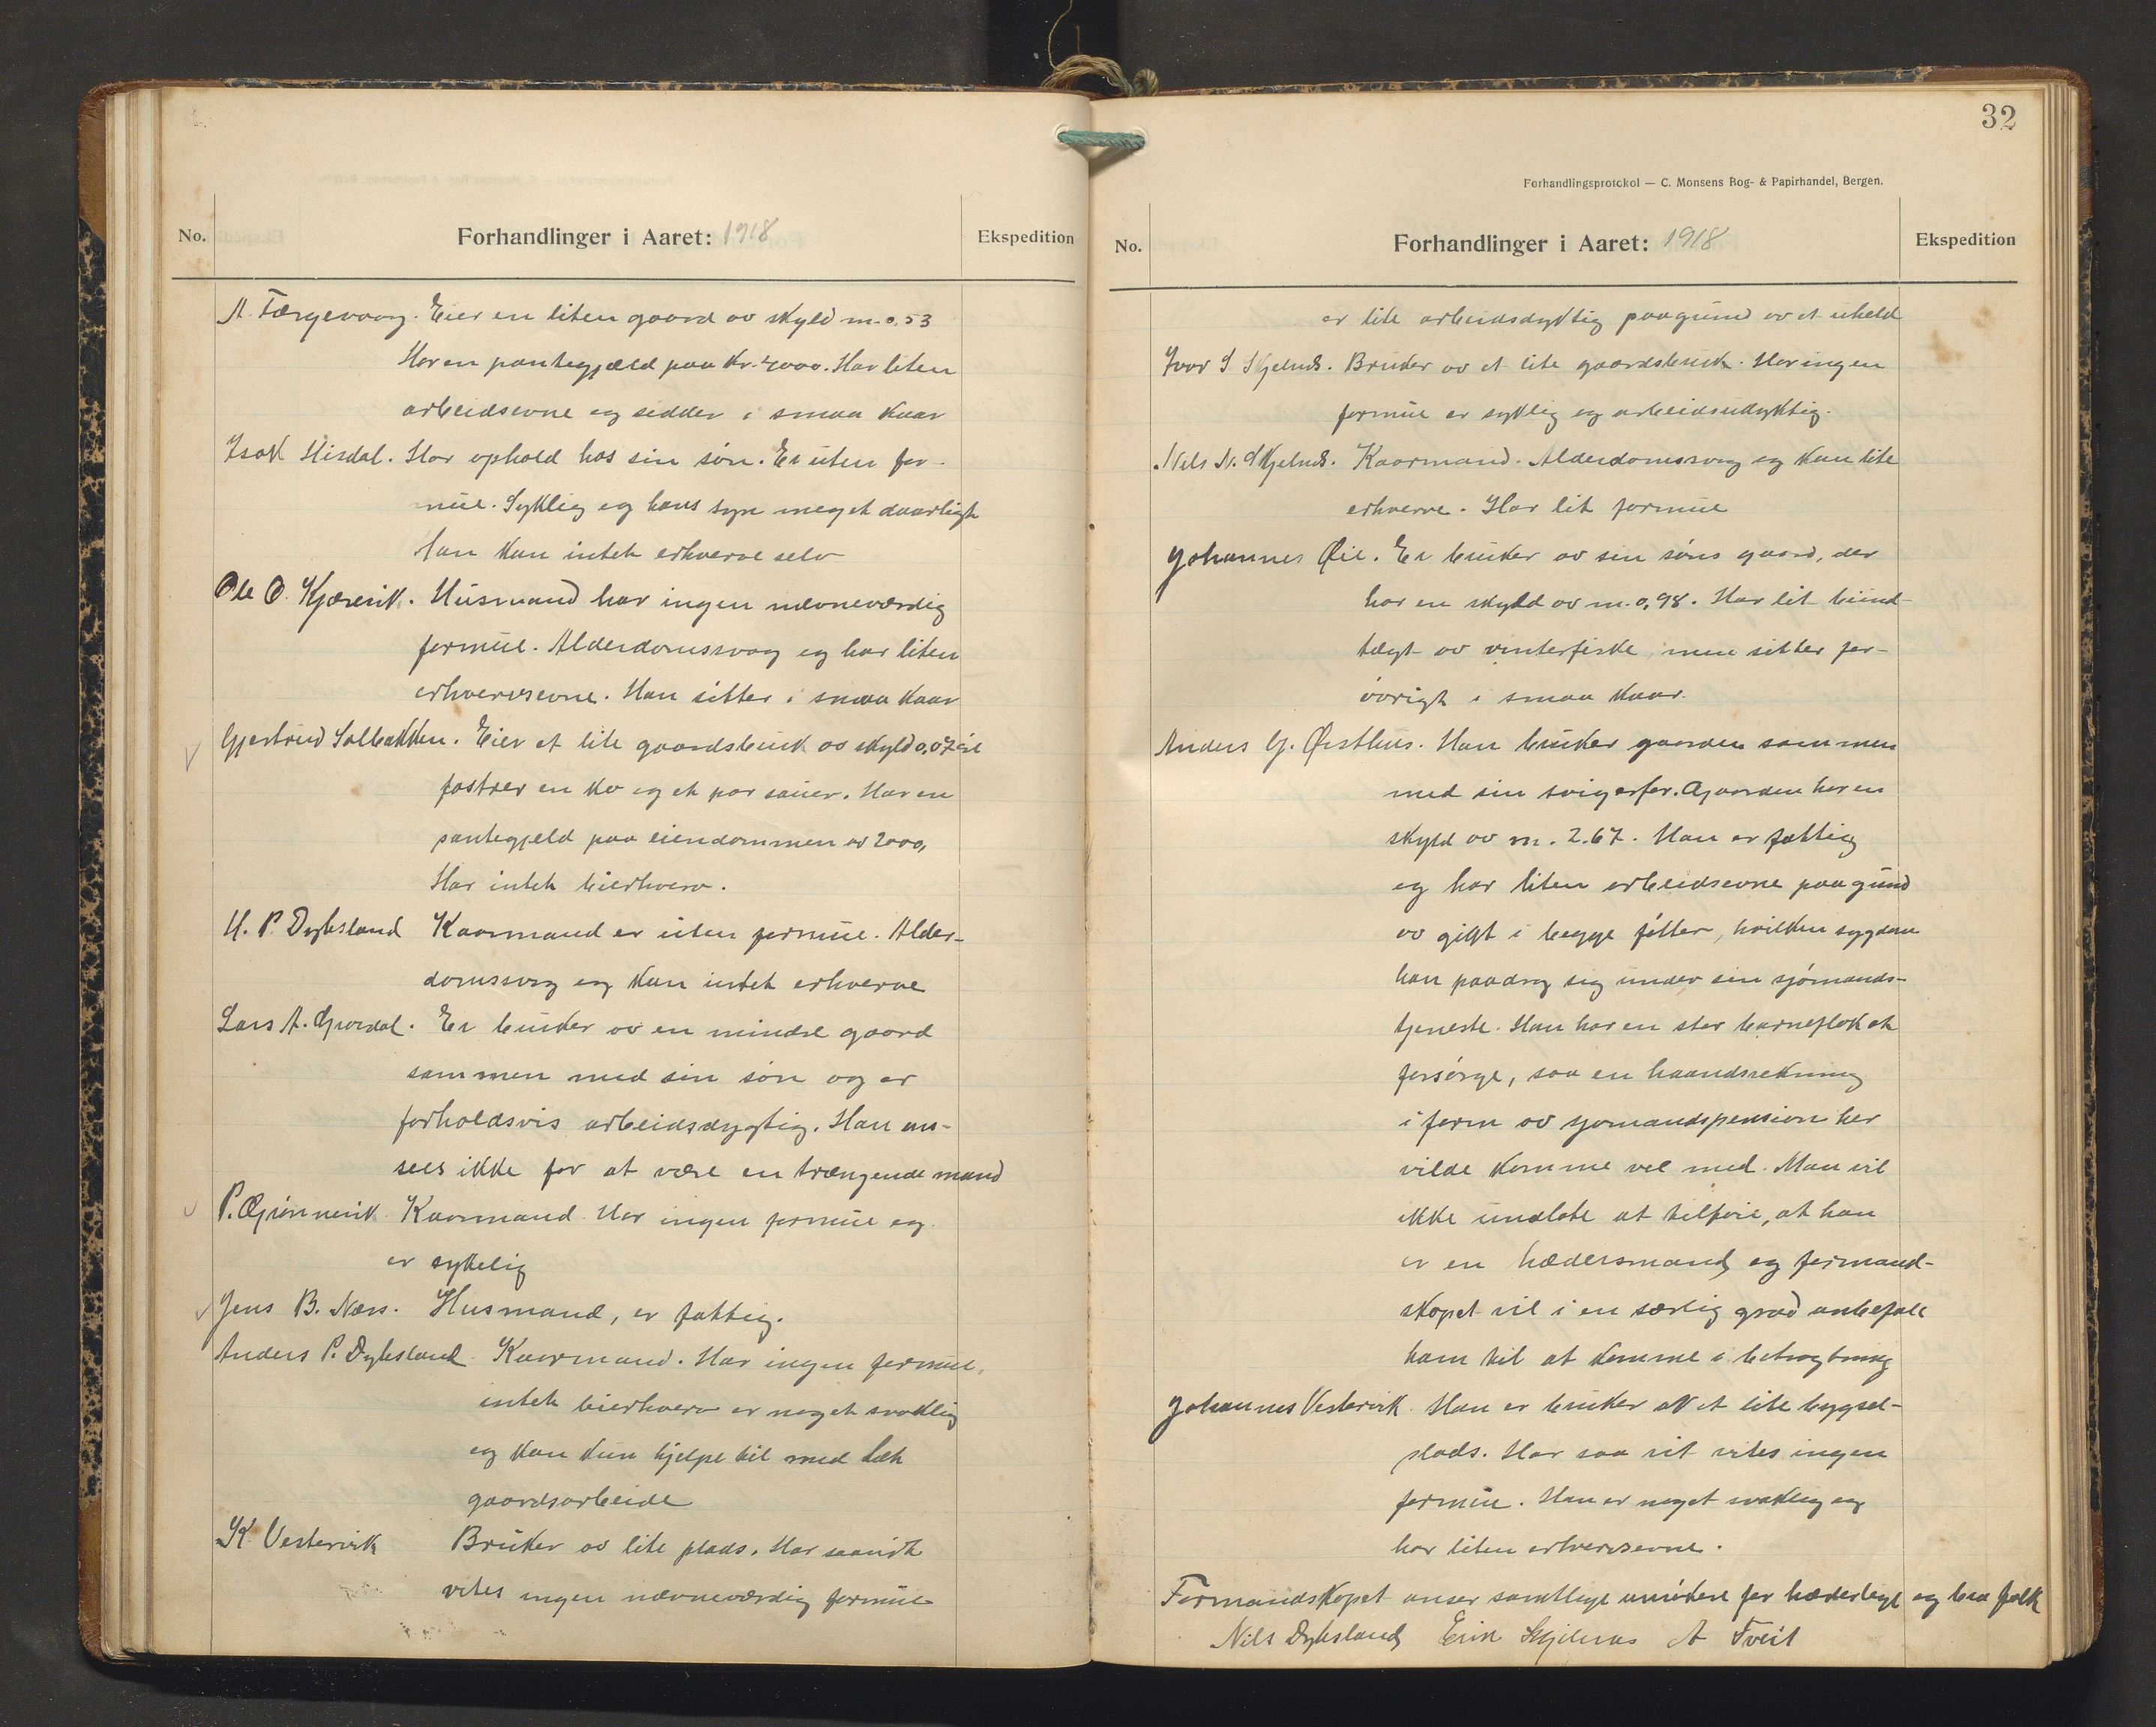 No.
Forhandlinger i Aaret: 1918
Ekspedition
A. Færgevaag. Eier en liten gaard av skyld m. 0,53
Har en pantegjæld paa Kr. 4000. Har liten
arbeidsevne og sidder i smaa kaar
Isak Hisdal. Har ophold hos sin søn. Er uten for-
mue. Syklig og hans syn meget daarligt
han kan intet erhverve selv
Ole O. Kjærevik. Husmand har ingen nævneværdig
formue. Alderdomssvag og har liten
erhvervsevne. Han sitter i smaa kaar
Gjertrud Solbakken. Eier et lite gaardsbruk av skyld 0,07 øre
fostrer en ko og et par sauer. Har en
pantegjeld paa eiendommen av 2000,
Har intet bierhverv.
H. P. Dyksland Kaarmand er uten formue. Alder-
domssvag og kan intet erhverve
Lars A. Gjerdal. Er bruker av en mindre gaard
sammen med sin søn og er
forholdsvis arbeidsdygtig. Han an-
sees ikke for at være en trængende mand
P. Grønnevik Kaarmand. Har ingen formue og
er sykelig
Jens B. Næss. Husmand, er fattig.
Anders P. Dyksland Kaarmand. Har ingen formue,
intet bierhverv er noget svaklig
og kan kun hjelpe til med let
gaardsarbeide
K Vestervik Bruker av lite plads. Har saavidt
vites ingen nævneværdig formue
32
Forhandlingsprotokol — C. Monsens Bog- & Papirhandel, Bergen.
No.
Forhandlinger i Aaret: 1918
Ekspedition
er lite arbeidsdyktig paagrund av et uheld
Ivar S. Skjelnes. Bruker av et lite gaardsbruk. Har ingen
formue er syklig og arbeidsudyktig.
Nils N. Skjelnes. Kaarmand. Alderdomssvag og kan lite
erhverve. Har lit formue
Johannes Øie. Er bruker av sin søns gaard, der
har en skyld av m. 0,98. Har lit bind-
tægt av vinterfiske, men sitter for-
øvrigt i smaa kaar.
Anders G. Østhus. Han bruker gaarden sammen
med sin svigerfar. Gaarden har en
skyld av m. 2.67. Han er fattig
og har liten arbeidsevne paagrund
av gigt i begge føtter, hvilken sygdom
han paadrog sig under sin sjømands-
tjeneste. Han har en stor barneflok at
forsørge, saa en haandsrekning
i form av sjomandspension her
vilde komme vel med. Man vil
ikke undlate at tilføie, at han
er en hædersmand, og formand-
skapet vil i en særlig grad anbefale
ham til at komme i betragtning
Johannes Vestervik Han er bruker av et lite bygsel-
plads. Har saa vit vites ingen
formue. Han er noget svaklig og
har liten erhvervsevne.
Formandskapet anser samtlige for hæderlige og bra folk
Nils Dyksland Erik Skjelnes A Tveit